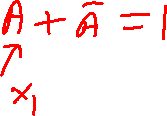 A + Ā = 1
x₁